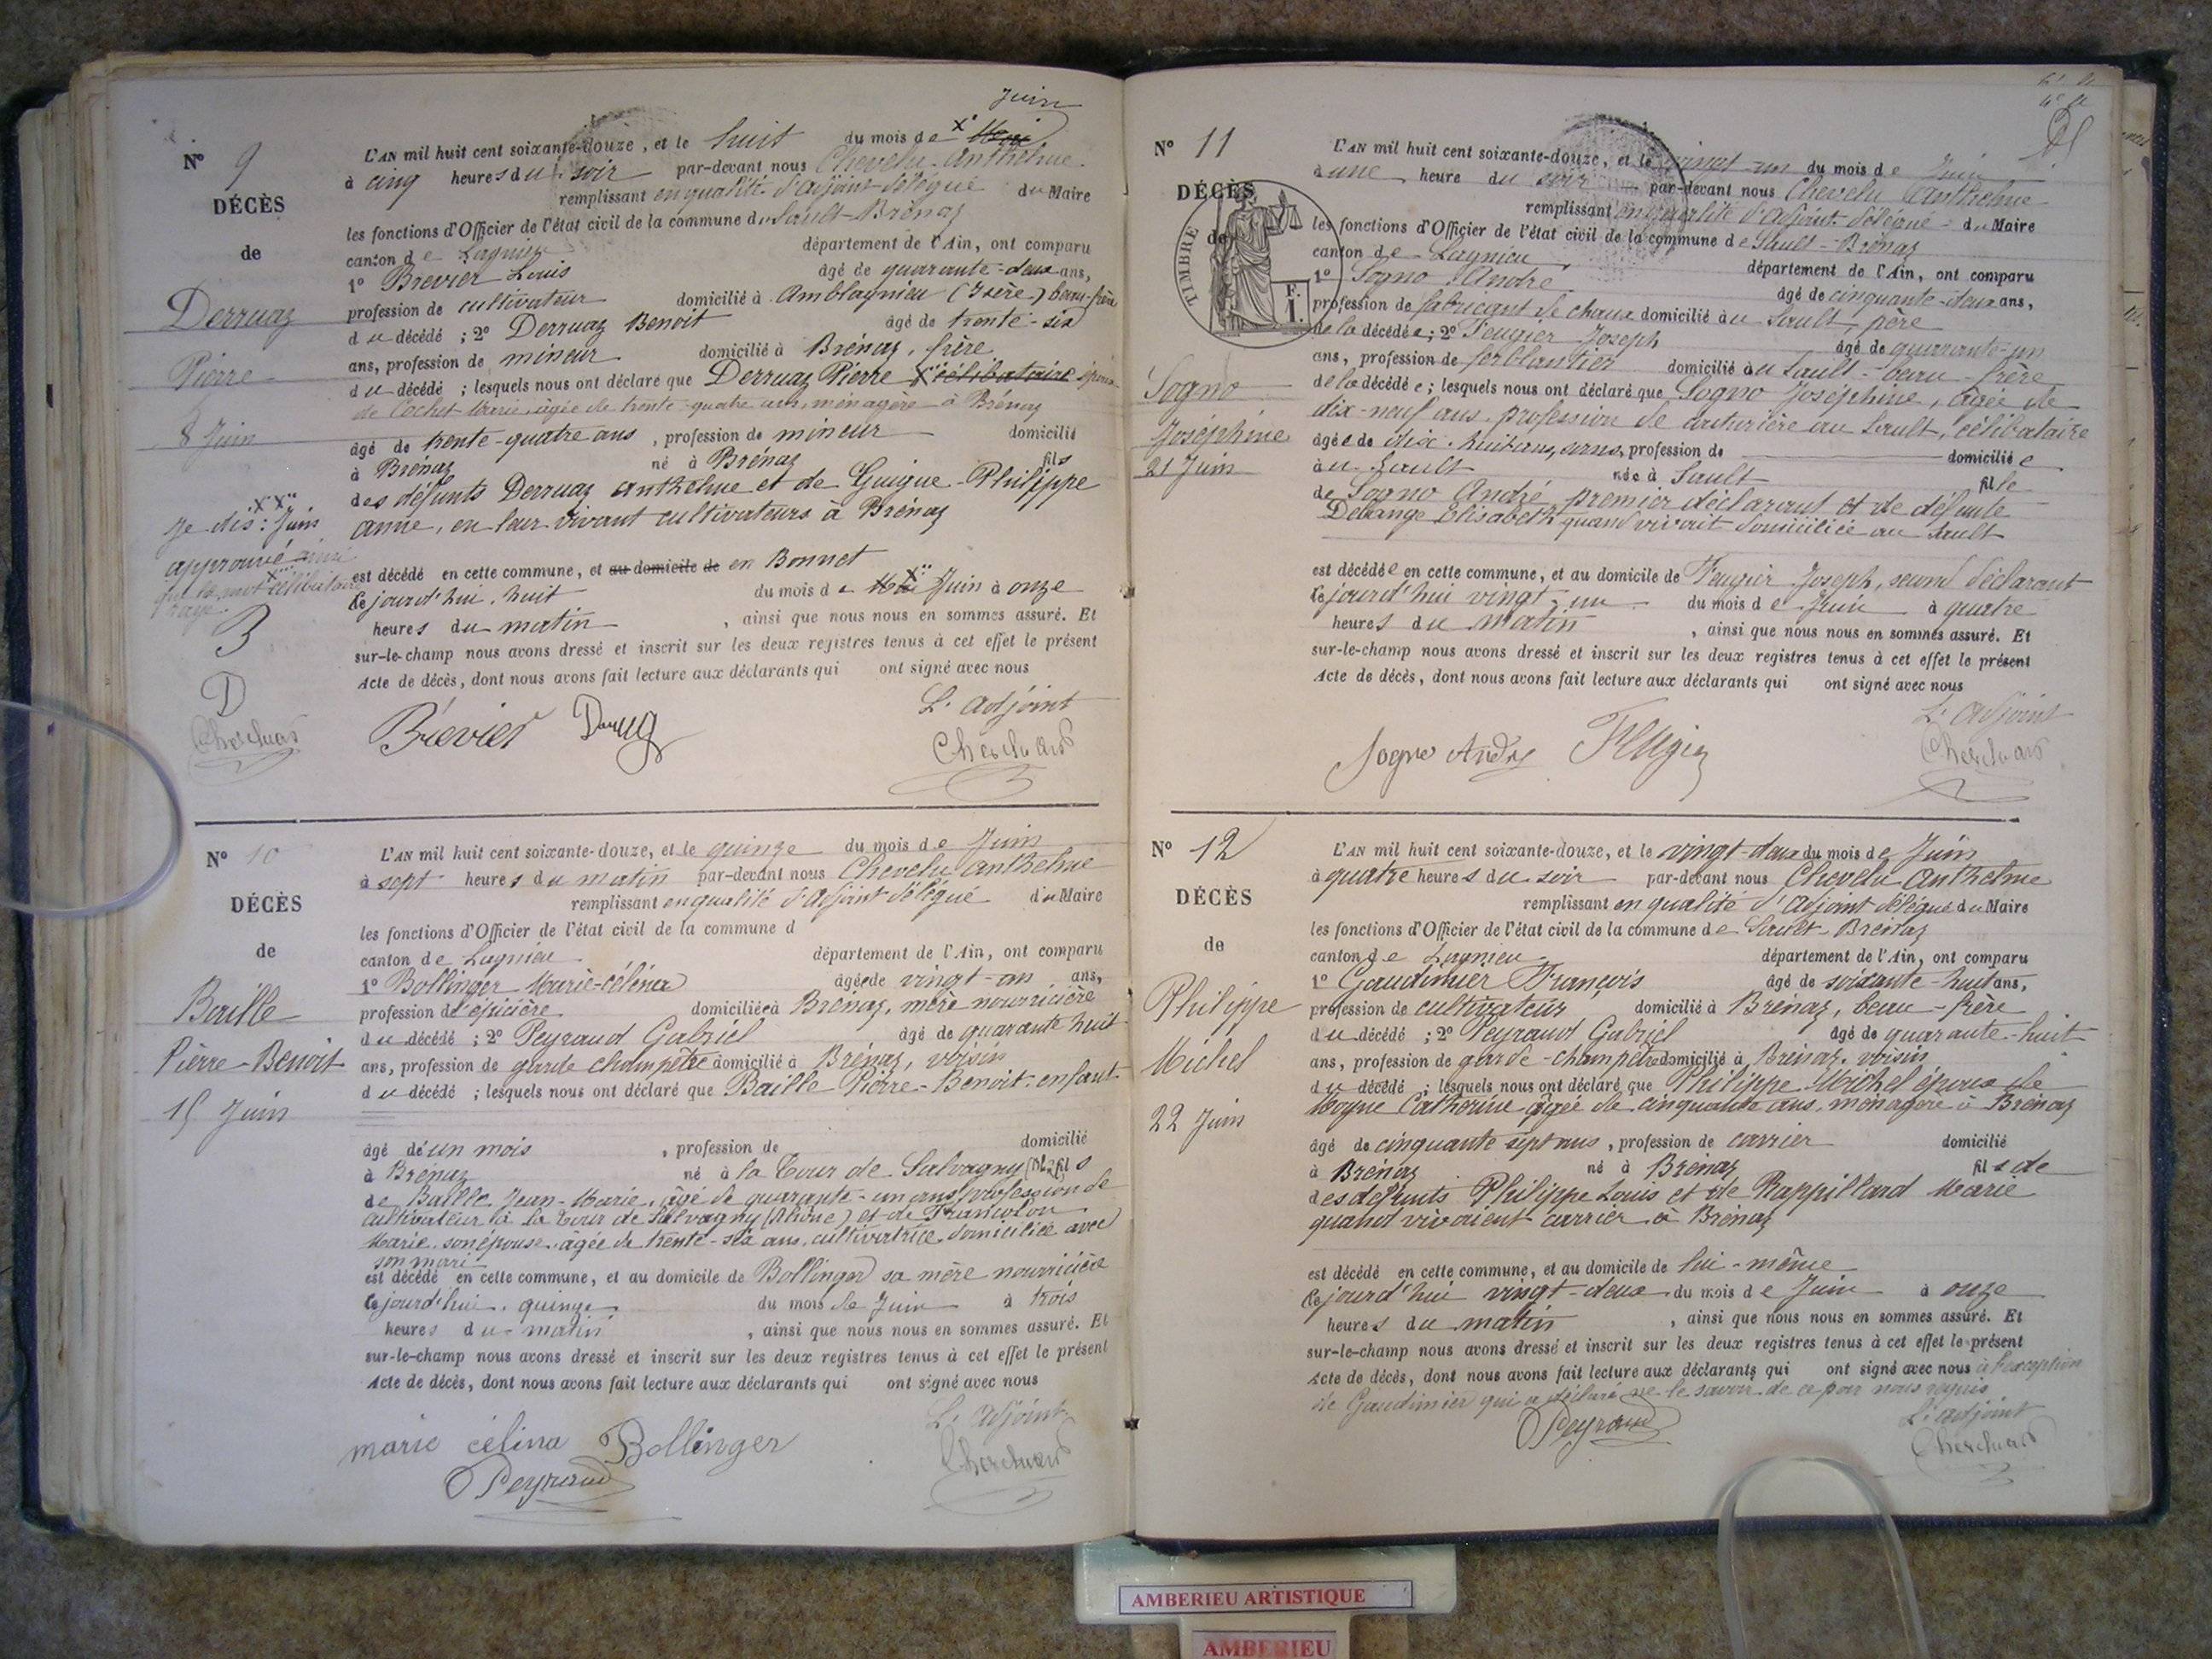 Juin
N° 9
DÉCÈS
de
Derruaz
Pierre
8 Juin
L'AN mil huit cent soixante-douze, et le huit du mois de X° Mai
à cinq heures du soir par-devant nous Chevelu Anthelme
remplissant en qualité d'adjoint délégué du Maire
les fonctions d'Officier de l'état civil de la commune du Sault-Brénaz
canton de Lagnieu département de l'Ain, ont comparu
1° Brevier Louis âgé de quarante-deux ans,
profession de cultivateur domicilié à Amblagnieu (Isère) beau-frère
du décédé ; 2° Derruaz Benoit âgé de trente-six
ans, profession de mineur domicilié à Brénaz, frère
du décédé ; lesquels nous ont déclaré que Derruaz Pierre célibataire époux
de Cochet Marie, âgée de trente-quatre ans, ménagère à Brénaz
âgé de trente-quatre ans, profession de mineur domicilié
à Brénaz né à Brénaz fils
des défunts Derruaz Anthelme et de Guigue-Philippe
Anne, en leur vivant cultivateurs à Brénaz
est décédé en cette commune, et au domicile de en Bonnet
Cejourd'hui huit du mois de Mai Juin à onze
heures du matin, ainsi que nous nous en sommes assuré. Et
sur-le-champ nous avons dressé et inscrit sur les deux registres tenus à cet effet le présent
Acte de décès, dont nous avons fait lecture aux déclarants qui ont signé avec nous
Je dis : Juin
approuvé ainsi
que le mot célibataire
rayé.
B
D
L'adjoint
Brevier
N° 10
DÉCÈS
de
Baille
Pierre-Benoit
15 Juin
L'AN mil huit cent soixante-douze, et le quinze du mois de Juin
à sept heures du matin par-devant nous Chevelu Anthelme
remplissant en qualité d'adjoint délégué du Maire
les fonctions d'Officier de l'état civil de la commune d
canton de Lagnieu département de l'Ain, ont comparu
1° Bollinger Marie-célina âgée de vingt-un ans,
profession d'épicière domiciliée à Brénaz, mère nourricière
du décédé ; 2° Peyraud Gabriel âgé de quarante huit
ans, profession de garde champêtre domicilié à Brénaz, voisin
du décédé ; lesquels nous ont déclaré que Baille Pierre-Benoit, enfant
âgé de un mois, profession de domicilié
à Brénaz né à la Tour de Salvagny fils
de Baille Jean-Marie, âgé de quarante-un ans, profession de
cultivateur à la Tour de Salvagny (Rhône) et de
Marie, son épouse, âgée de trente-six ans, cultivatrice, domiciliée avec
son mari
est décédé en cette commune, et au domicile de Bollinger sa mère nourricière
Cejourd'hui quinze du mois de Juin à trois
heures du matin, ainsi que nous nous en sommes assuré. Et
sur-le-champ nous avons dressé et inscrit sur les deux registres tenus à cet effet le présent
Acte de décès, dont nous avons fait lecture aux déclarants qui ont signé avec nous
L'adjoint
marie célina Bollinger
Peyraud
N° 11
DÉCÈS
de
TIMBRE
F.
1.
Sogno
Joséphine
21 Juin
L'AN mil huit cent soixante-douze, et le vingt-un du mois de Juin
à une heure du soir par-devant nous Chevelu Anthelme
remplissant en qualité d'adjoint délégué du Maire
les fonctions d'Officier de l'état civil de la commune de Sault-Brénaz
canton de Lagnieu département de l'Ain, ont comparu
1° Sogno André âgé de cinquante-deux ans,
profession de fabricant de chaux domicilié au Sault, père
de la décédée ; 2° Feugier Joseph âgé de quarante-un
ans, profession de ferblantier domicilié au Sault-beau-frère
de la décédée ; lesquels nous ont déclaré que Sogno Joséphine, âgée de
dix-neuf ans, profession de couturière au Sault, célibataire
âgée de dix-huit ans, sans, profession de domiciliée
au Sault née à Sault fille
de Sogno André premier déclarant et de défunte
Debange Elisabeth quand vivait domiciliée au Sault
est décédée en cette commune, et au domicile de Feugier Joseph, second déclarant
Cejourd'hui vingt-un du mois de Juin à quatre
heures du matin, ainsi que nous nous en sommes assuré. Et
sur-le-champ nous avons dressé et inscrit sur les deux registres tenus à cet effet le présent
Acte de décès, dont nous avons fait lecture aux déclarants qui ont signé avec nous
L'adjoint
Sogno André Feugier
N° 12
DÉCÈS
de
Philippe
Michel
22 Juin
L'AN mil huit cent soixante-douze, et le vingt-deux du mois de Juin
à quatre heures du soir par-devant nous Chevelu Anthelme
remplissant en qualité d'Adjoint délégué du Maire
les fonctions d'Officier de l'état civil de la commune de Sault-Brénaz
canton de Lagnieu département de l'Ain, ont comparu
1° Gaudimier François âgé de soixante-huit ans,
profession de cultivateur domicilié à Brénaz, beau-frère
du décédé ; 2° Peyraud Gabriel âgé de quarante-huit
ans, profession de garde-champêtre domicilié à Brénaz, voisin
du décédé ; lesquels nous ont déclaré que Philippe Michel époux de
Moyne Catherine âgée de cinquante ans, ménagère à Brénaz
âgé de cinquante sept ans, profession de carrier domicilié
à Brénaz né à Brénaz fils de
des défunts Philippe Louis et de Rappillard Marie
quand vivaient carrier à Brénaz
est décédé en cette commune, et au domicile de lui-même
Cejourd'hui vingt-deux du mois de Juin à onze
heures du matin, ainsi que nous nous en sommes assuré. Et
sur-le-champ nous avons dressé et inscrit sur les deux registres tenus à cet effet le présent
Acte de décès, dont nous avons fait lecture aux déclarants qui ont signé avec nous à l'exception
de Gaudimier qui a déclaré ne le savoir de ce par nous requis
L'adjoint
Peyraud
AMBERIEU ARTISTIQUE
AMBERIEU